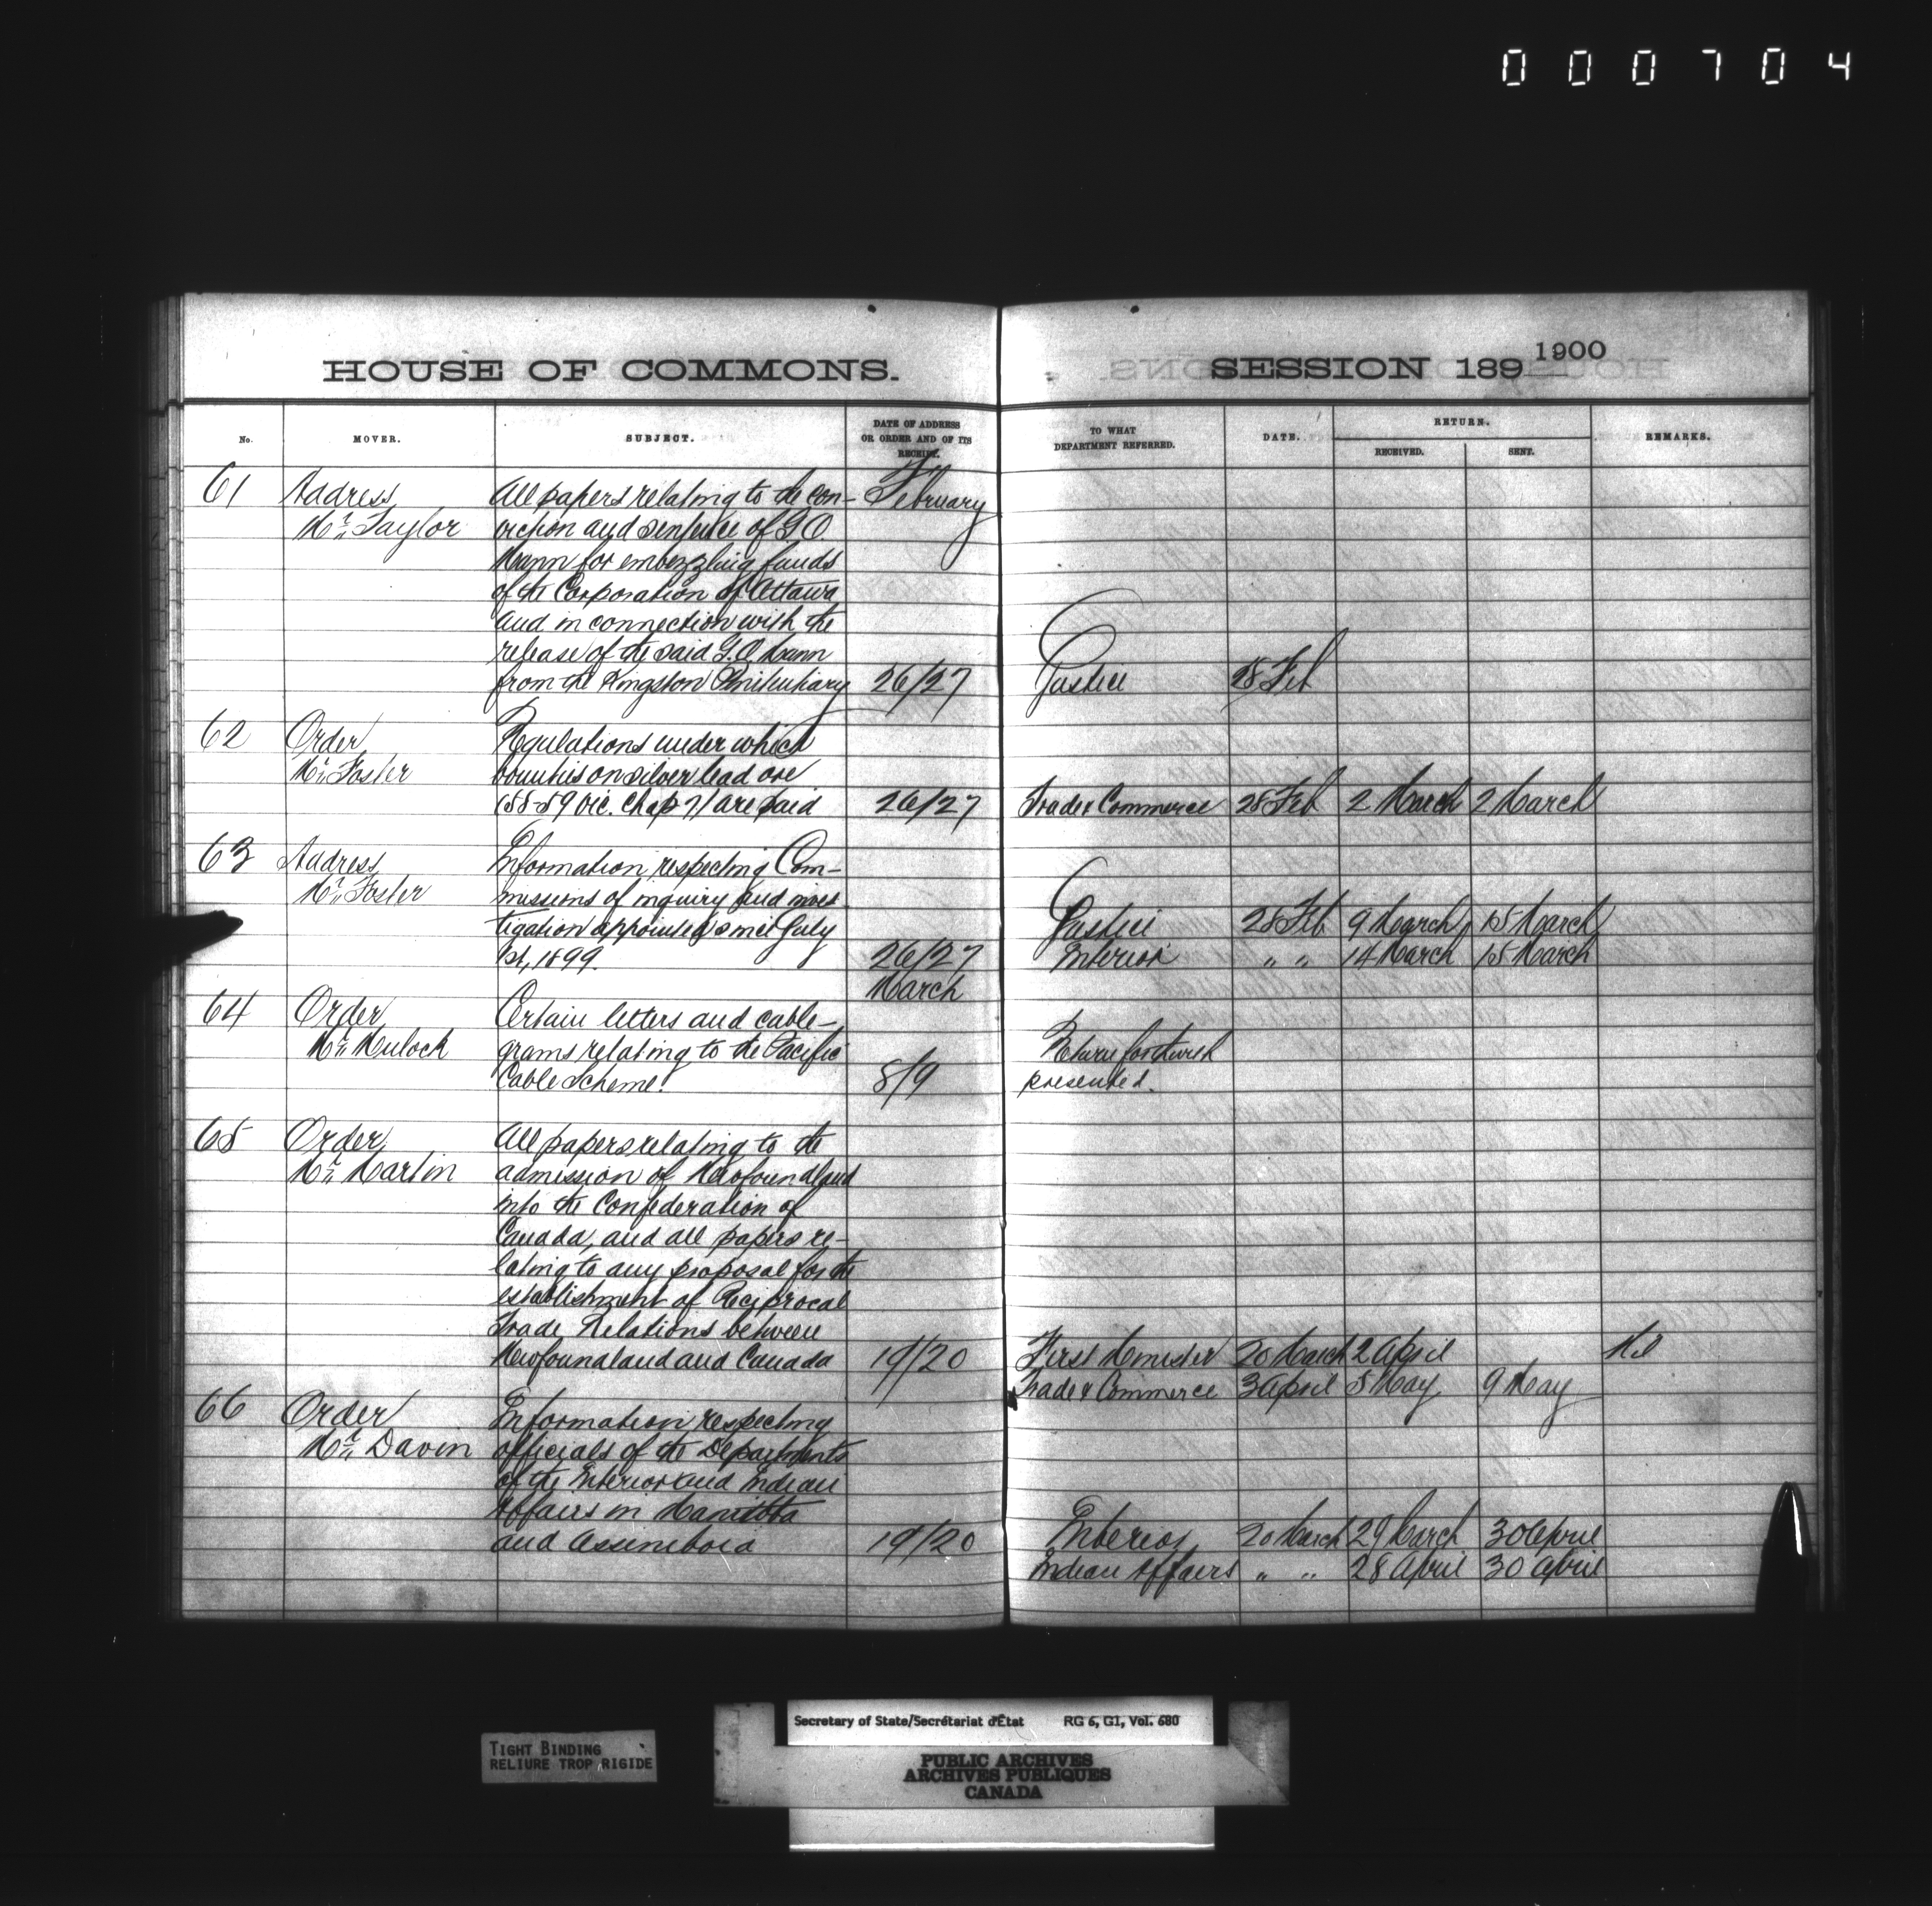 000704
HOUSE OF COMMONS.
SESSION 189 1900
No.
MOVER.
SUBJECT.
DATE OF ADDRESS
OR ORDER AND OF ITS
RECEIPT.
TO WHAT
DEPARTMENT REFERRED.
DATE.
RETURN.
RECEIVED.
SENT.
REMARKS.
61 Address All papers relating to the con- February
Mr. Taylor viction and sentence of G O
Mann for embezzling funds
of the Corporation of Ottawa
and in connection with the
release of the said G. O. Mann
from the Kingston Penitentiary 26/27 Justice 28 Feb
62 Order Regulations under which
Mr. Foster bounties on silver lead ore
(58-59 Vic. Chap 7) are paid 26/27 Trade & Commerce 28 Feb 2 March 2 March
63 Address Information respecting Com-
Mr. Foster missions of inquiry and inves
tigation appointed since July Justice 28 Feb 9 March 15 March
1st, 1899. 26/27 Interior " " 14 March 15 March
March
64 Order Certain letters and cable-
Mr. Mulock grams relating to the Pacific Return forthwith
Cable Scheme. 8/9 presented.
65 Order All papers relating to the
Mr. Martin admission of Newfoundland
into the Confederation of
Canada, and all papers re-
lating to any proposal for the
establishment of Reciprocal
Trade Relations between
Newfoundland and Canada 19/20 First Minister 20 March 2 April Nil
Trade & Commerce 3 April 5 May 9 May
66 Order Information respecting
Mr. Davin officials of the Departments
of the Interior and Indian
Affairs in Manitoba
and Assiniboia 19/20 Interior 20 March 29 March 30 April
Indian Affairs " " 28 April 30 April
Secretary of State/Secrétariat d'État RG 6, G1, Vol. 680
TIGHT BINDING
RELIURE TROP RIGIDE
PUBLIC ARCHIVES
ARCHIVES PUBLIQUES
CANADA